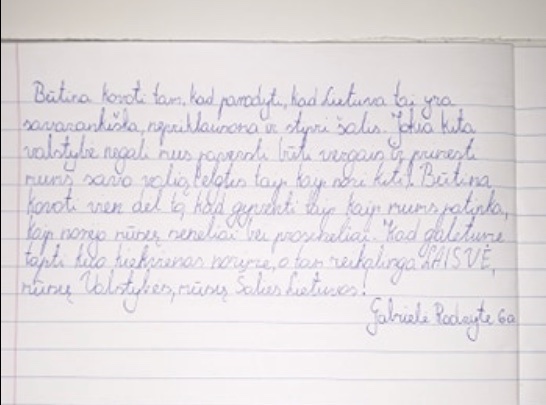 Būtina kovoti tam, kad parodyti, kad Lietuva tai yra
savarankiška, nepriklausoma ir stipri šalis. Jokia kita
valstybė negali mus paversti būti vergais ir primesti
mums savo valią, elgtis taip kaip nori kiti! Būtina
kovoti vien dėl to, kad gyventi taip kaip mums patinka,
kaip norėjo mūsų seneliai bei proseneliai. Kad galėtume
tapti kuo kiekvienas norime, o tam reikalinga LAISVĖ,
mūsų Valstybės, mūsų Šalies Lietuvos!
Gabrielė 6a